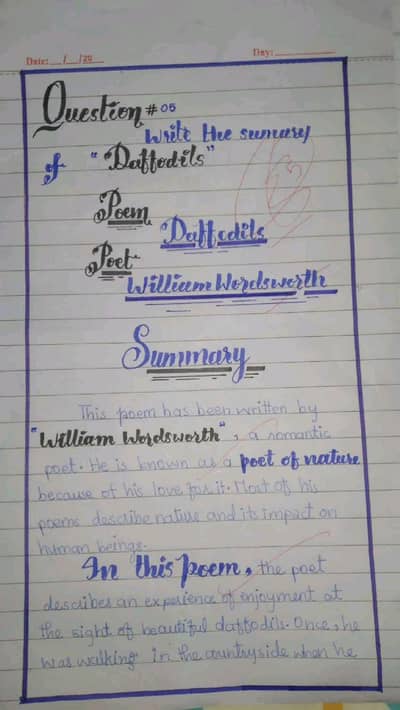 Date:__/__/20__ Day:________
Question #05
Write the sumary
of "Daffodils"
Poem
Daffodils
Poet
William Wordsworth
Summary
This poem has been written by
"William Wordsworth", a romantic
poet. He is known as a poet of nature
because of his love for it. Most of his
poems describe nature and its impact on
human beings.
In this poem, the poet
describes an experience of enjoyment at
the sight of beautiful daffodils. Once, he
was walking in the countryside when he